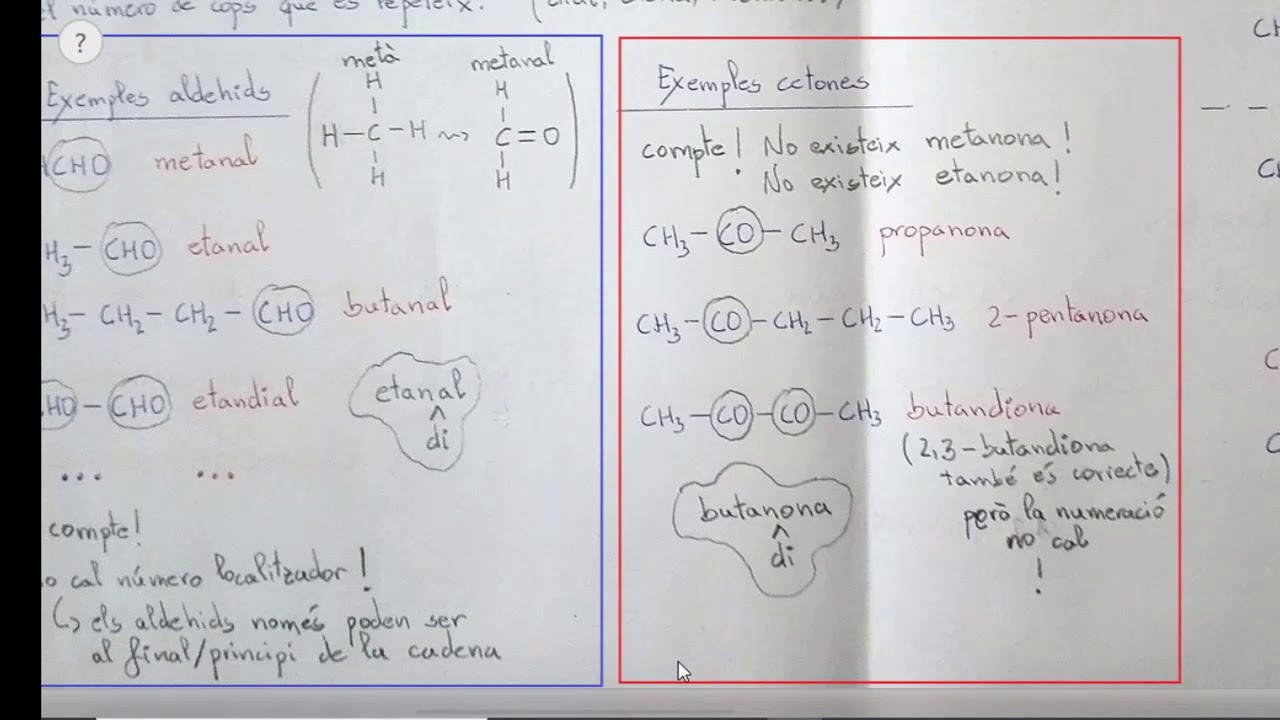 el número de cops que es repeteix.
?
Exemples aldehids
metà
metanal
H
H
H-C-H ⇝ C=O
H
H
CHO metanal
H₃-CHO etanal
H₃-CH₂-CH₂-CHO butanal
HO-CHO etandial
etanal
^
di
... ...
compte!
o cal número localitzador!
↳ els aldehids només poden ser
al final/principi de la cadena
Exemples cetones
compte! No existeix metanona!
No existeix etanona!
CH₃-CO-CH₃ propanona
CH₃-CO-CH₂-CH₂-CH₃ 2-pentanona
CH₃-CO-CO-CH₃ butandiona
(2,3-butandiona
també és correcte)
però la numeració
no cal
!
butanona
^
di
CH
C
C
C